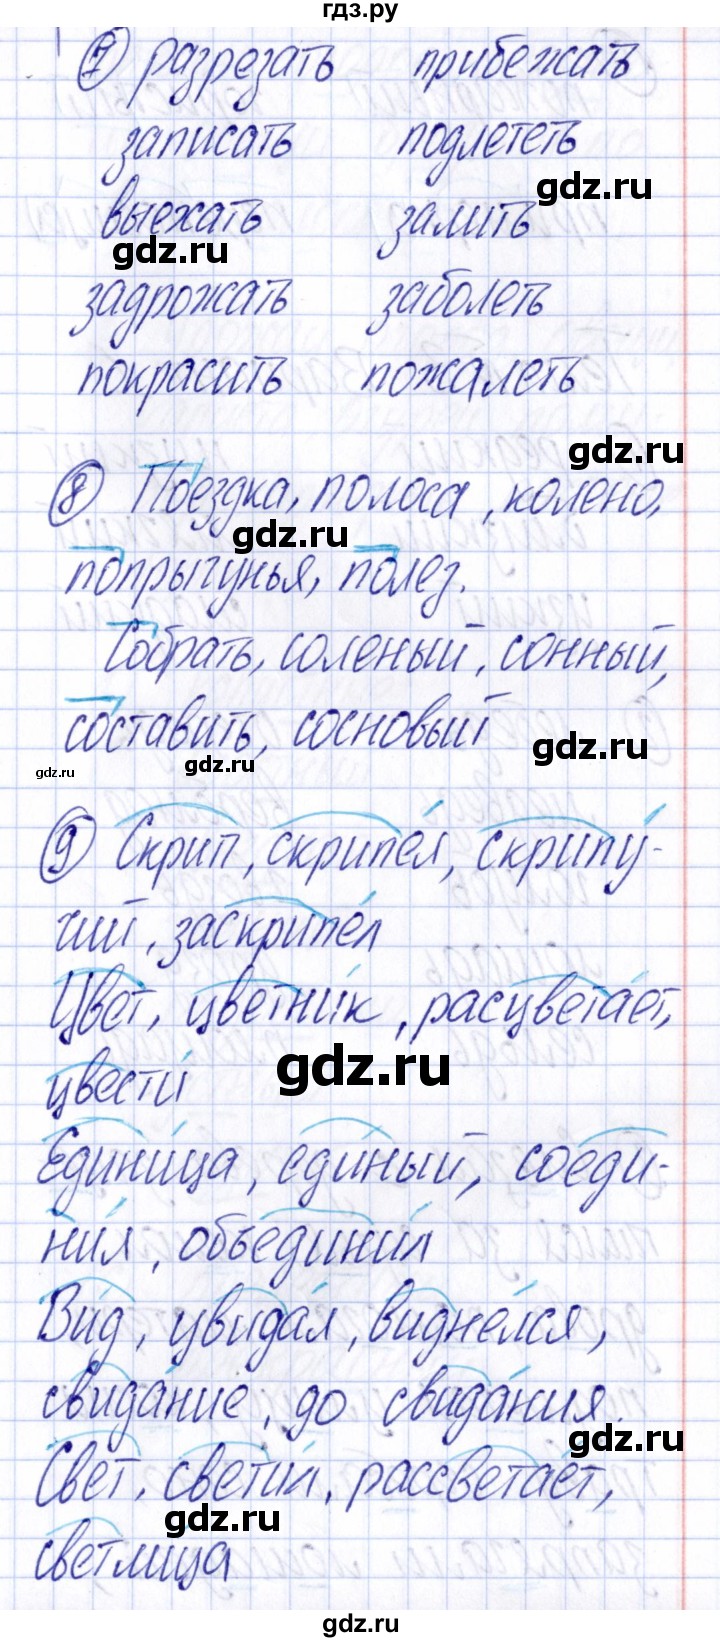 гдз.ру
7 разрезать прибежать
записать подлететь
gdz.ru
выехать залить
gdz.ru
задрожать заболеть
покрасить пожалеть
gdz.ru
8 Поездка, полоса, колено,
gdz.ru
попрыгунья, полез.
Собрать, соленый, сонный,
составить, сосновый
gdz.ru
gdz.ru
gdz.ru
9 Скрип, скрипе́л, скрипу́-
чий, заскрипе́л
Цвет, цветни́к, расцвета́ет,
gdz.ru
цвести́
Едини́ца, еди́ный, соеди-
ни́л, объедини́л
Ви́д, увида́л, видне́лся,
свида́ние, до свида́ния.
gdz.ru
Свет, свети́л, рассвета́ет,
gdz.ru
светлица
gdz.ru